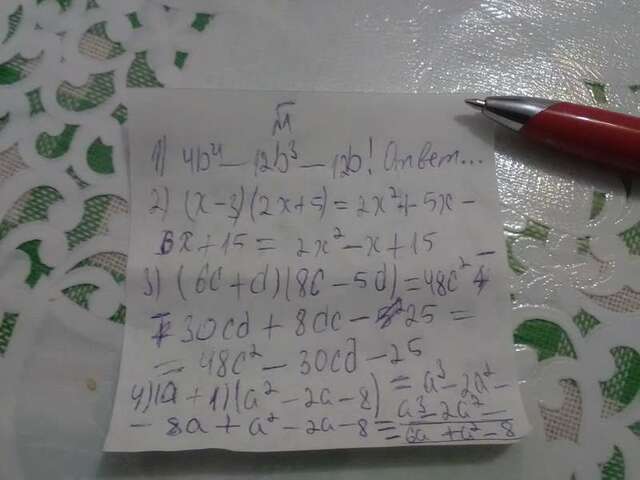 1) 4b⁴ – 12b³ – 12b! Ответ...
2) (x – 3)(2x + 5) = 2x² + 5x –
6x + 15 = 2x² – x + 15
3) (6c + d)(8c – 5d) = 48c² –
30cd + 8dc – 25 =
= 48c² – 30cd – 25
4) (a + 1)(a² – 2a – 8) = a³ – 2a² –
– 8a + a² – 2a – 8 = a³ – 2a² –
6a + a² – 8